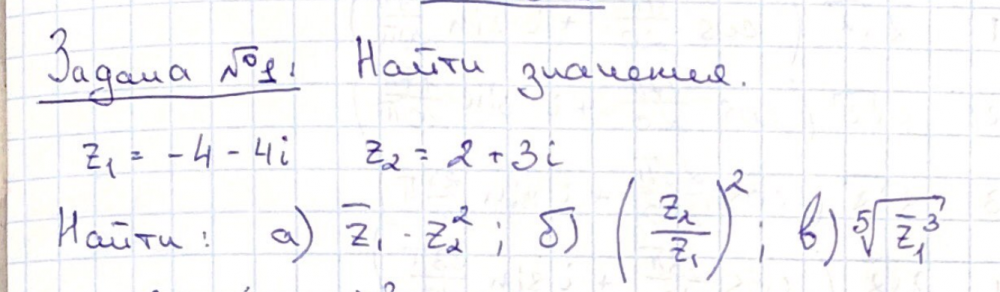 Задача №1. Найти значения.
z₁ = -4 - 4i z₂ = 2 + 3i
Найти: а) z̄₁ · z₂²; б) (z₂/z₁)²; в) ⁵√(z̄₁³)